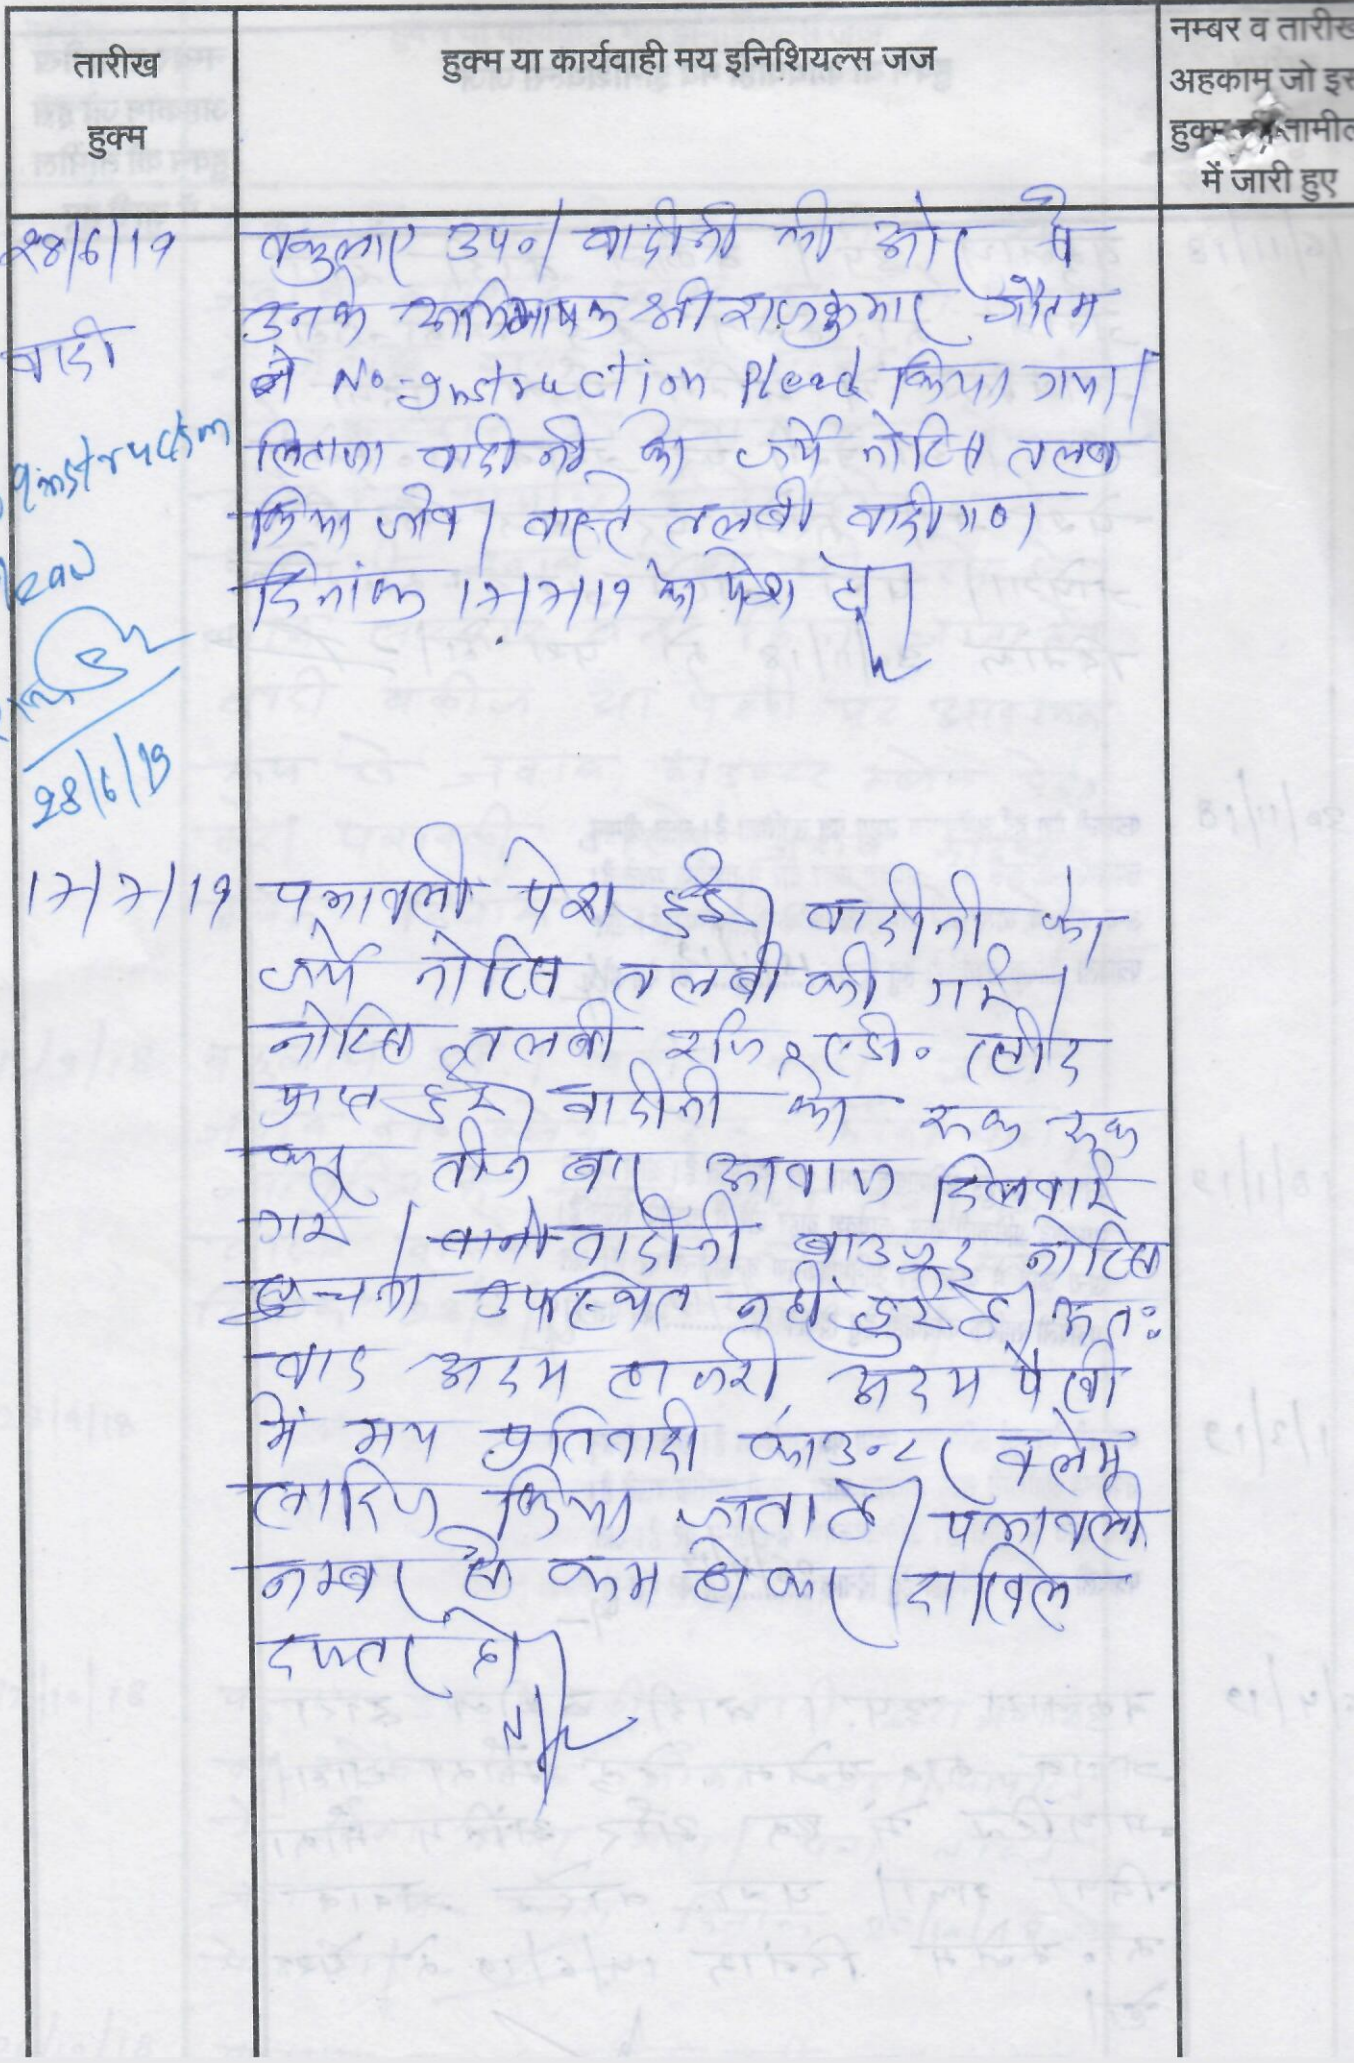 तारीख
हुक्म
हुक्म या कार्यवाही मय इनिशियल्स जज
नम्बर व तारीख
अहकाम जो इस
हुक्म की तामील
में जारी हुए
28/6/19
वकुलाए उप०। वादीनी की ओर से
उनके अभिभाषक श्री राजकुमार गौतम
ने No-Instruction Plead किया गया।
लिहाजा वादीनी को जर्ये नोटिस तलब
किया जावे। वास्ते तलबी वादीगण।
दिनांक 17/7/19 को पेश हो।
वादी
instruction
plead
28/6/19
17/7/19
पत्रावली पेश हुई। वादीनी को
जर्ये नोटिस तलबी की गई।
नोटिस तलबी रजि० ए.डी. रसीद
प्राप्त हुई। वादीनी को रूक रूक
कर तीन बार आवाज दिलवाई
गई। वादीनी बाउजूद नोटिस
सूचना उपस्थित नहीं हुई है। अतः
वाद अदम हाजरी, अदम पैरवी
में मय प्रतिवादी काउन्टर क्लेम
खारिज किया जाता है। पत्रावली
नम्बर से कम होकर दाखिल
दफ्तर हो।